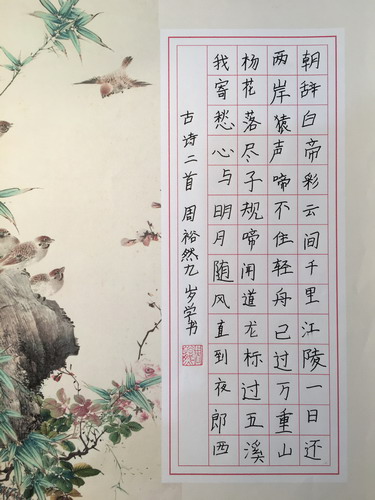 朝辞白帝彩云间千里江陵一日还
两岸猿声啼不住轻舟已过万重山
杨花落尽子规啼闻道龙标过五溪
我寄愁心与明月随风直到夜郎西
古诗二首 周裕然九岁学书